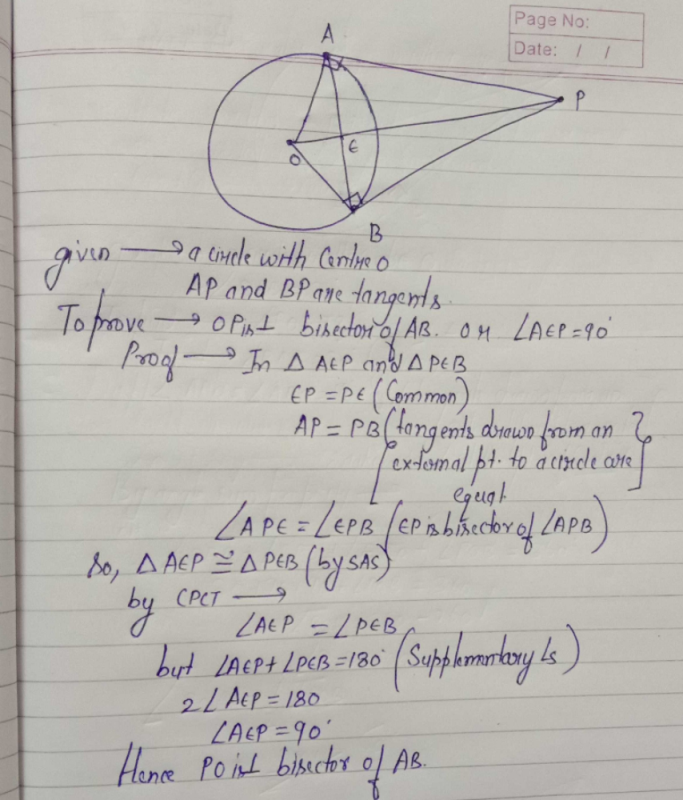 Page No:
Date: / /
A
P
O
E
B
given → a circle with Centre O
AP and BP are tangents.
To prove → OP is ⊥ bisector of AB. or ∠AEP = 90°
Proof → In △ AEP and △ PEB
EP = PE (Common)
AP = PB (tangents drawn from an
external pt. to a circle are
equal.
∠APE = ∠EPB (EP is bisector of ∠APB)
So, △ AEP ≅ △ PEB (by SAS)
by CPCT →
∠AEP = ∠PEB
but ∠AEP + ∠PEB = 180° (Supplementary ∠s)
2∠AEP = 180
∠AEP = 90°
Hence PO is ⊥ bisector of AB.